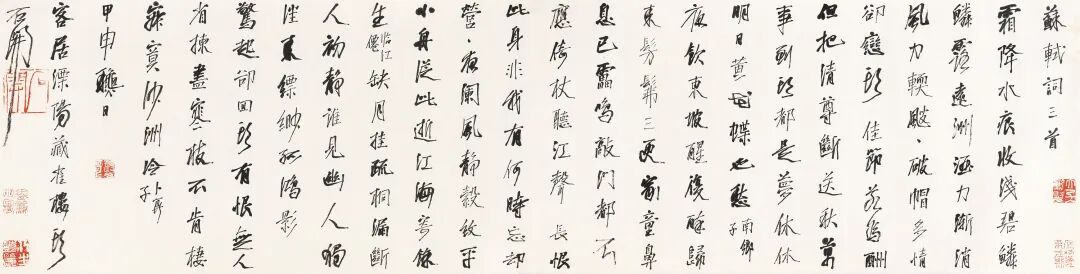 蘇軾詞三首
霜降水痕收淺碧鱗
鱗露遠洲酒力漸消
風力輭颼、破帽多情
卻戀頭佳節若為酬
但把清尊斷送秋萬
事到頭都是夢休休
明日黃花蝶也愁 南鄉子
夜飲東坡醒復醉歸
來髣髴三更家童鼻
息已雷鳴敲門都不
應倚杖聽江聲長恨
此身非我有何時忘却
營、夜闌風靜縠紋平
小舟從此逝江海寄餘
生 臨江僊 缺月挂疏桐漏斷
人初靜誰見幽人獨
往來縹緲孤鴻影
驚起卻回頭有恨無人
省揀盡寒枝不肯棲
寂寞沙洲冷 卜算子
甲申 日
客居溧陽藏 樓頭
石開